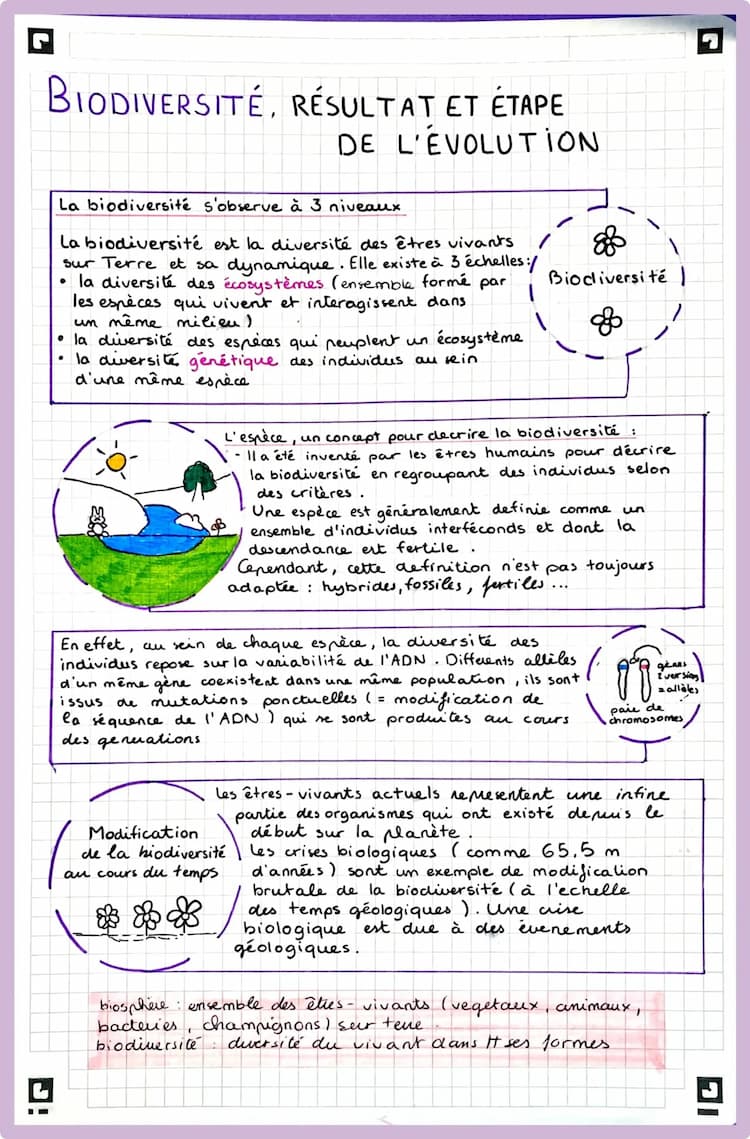 BIODIVERSITÉ, RÉSULTAT ET ÉTAPE
DE L'ÉVOLUTION
La biodiversité s'observe à 3 niveaux
La biodiversité est la diversité des êtres vivants
sur Terre et sa dynamique. Elle existe à 3 échelles :
• la diversité des écosystèmes (ensemble formé par
les espèces qui vivent et interagissent dans
un même milieu)
• la diversité des espèces qui peuplent un écosystème
• la diversité génétique des individus au sein
d'une même espèce
Biodiversité
L'espèce, un concept pour decrire la biodiversité :
- Il a été inventé par les êtres humains pour décrire
la biodiversité en regroupant des individus selon
des critères.
Une espèce est généralement definie comme un
ensemble d'individus interféconds et dont la
descendance est fertile.
Cependant, cette definition n'est pas toujours
adaptée : hybrides, fossiles, fertiles ...
En effet, au sein de chaque espèce, la diversité des
individus repose sur la variabilité de l'ADN. Différents allèles
d'un même gène coexistent dans une même population, ils sont
issus de mutations ponctuelles (= modification de
la séquence de l'ADN) qui se sont produites au cours
des générations
gènes
versions
= allèles
paire de
chromosomes
Modification
de la biodiversité
au cours du temps
Les êtres-vivants actuels représentent une infine
partie des organismes qui ont existé depuis le
début sur la planète.
Les crises biologiques (comme 65,5 m
d'années) sont un exemple de modification
brutale de la biodiversité (à l'echelle
des temps géologiques). Une crise
biologique est due à des évenements
géologiques.
biosphère : ensemble des êtres-vivants (vegetaux, animaux,
bacteries, champignons) sur terre
biodiversité : diversité du vivant dans tt ses formes